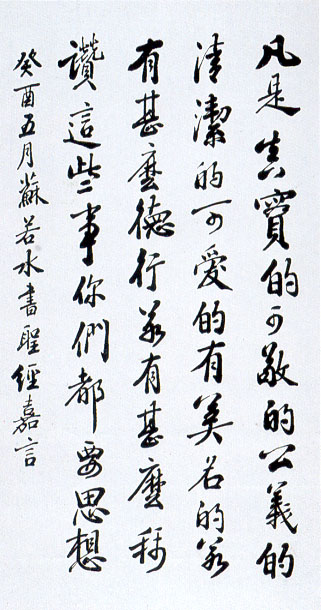 凡是真實的可敬的公義的
清潔的可愛的有美名的若
有甚麼德行若有甚麼稱
讚這些事你們都要思想
癸酉五月蘇若水書聖經嘉言